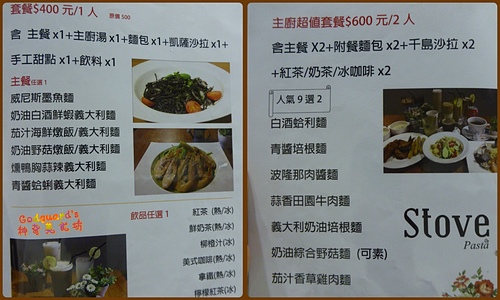 套餐$400 元/1 人 原價 500
含 主餐 x1+主廚湯 x1+麵包 x1+凱薩沙拉 x1+
手工甜點 x1+飲料 x1
主餐任選 1
威尼斯墨魚麵
奶油白酒鮮蝦義大利麵
茄汁海鮮燉飯/義大利麵
奶油野菇燉飯/義大利麵
燻鴨胸蒜辣義大利麵
青醬蛤蜊義大利麵
飲品任選 1
紅茶 (熱/冰)
鮮奶茶(熱/冰)
柳橙汁(冰)
美式咖啡(熱/冰)
拿鐵(熱/冰)
檸檬紅茶(冰)
主廚超值套餐$600 元/2 人
含主餐 X2+附餐麵包 x2+千島沙拉 x2
+紅茶/奶茶/冰咖啡 x2
人氣 9 選 2
白酒蛤利麵
青醬培根麵
波隆那肉醬麵
蒜香田園牛肉麵
義大利奶油培根麵
奶油綜合野菇麵 (可素)
茄汁香草雞肉麵
Stove
Pasta